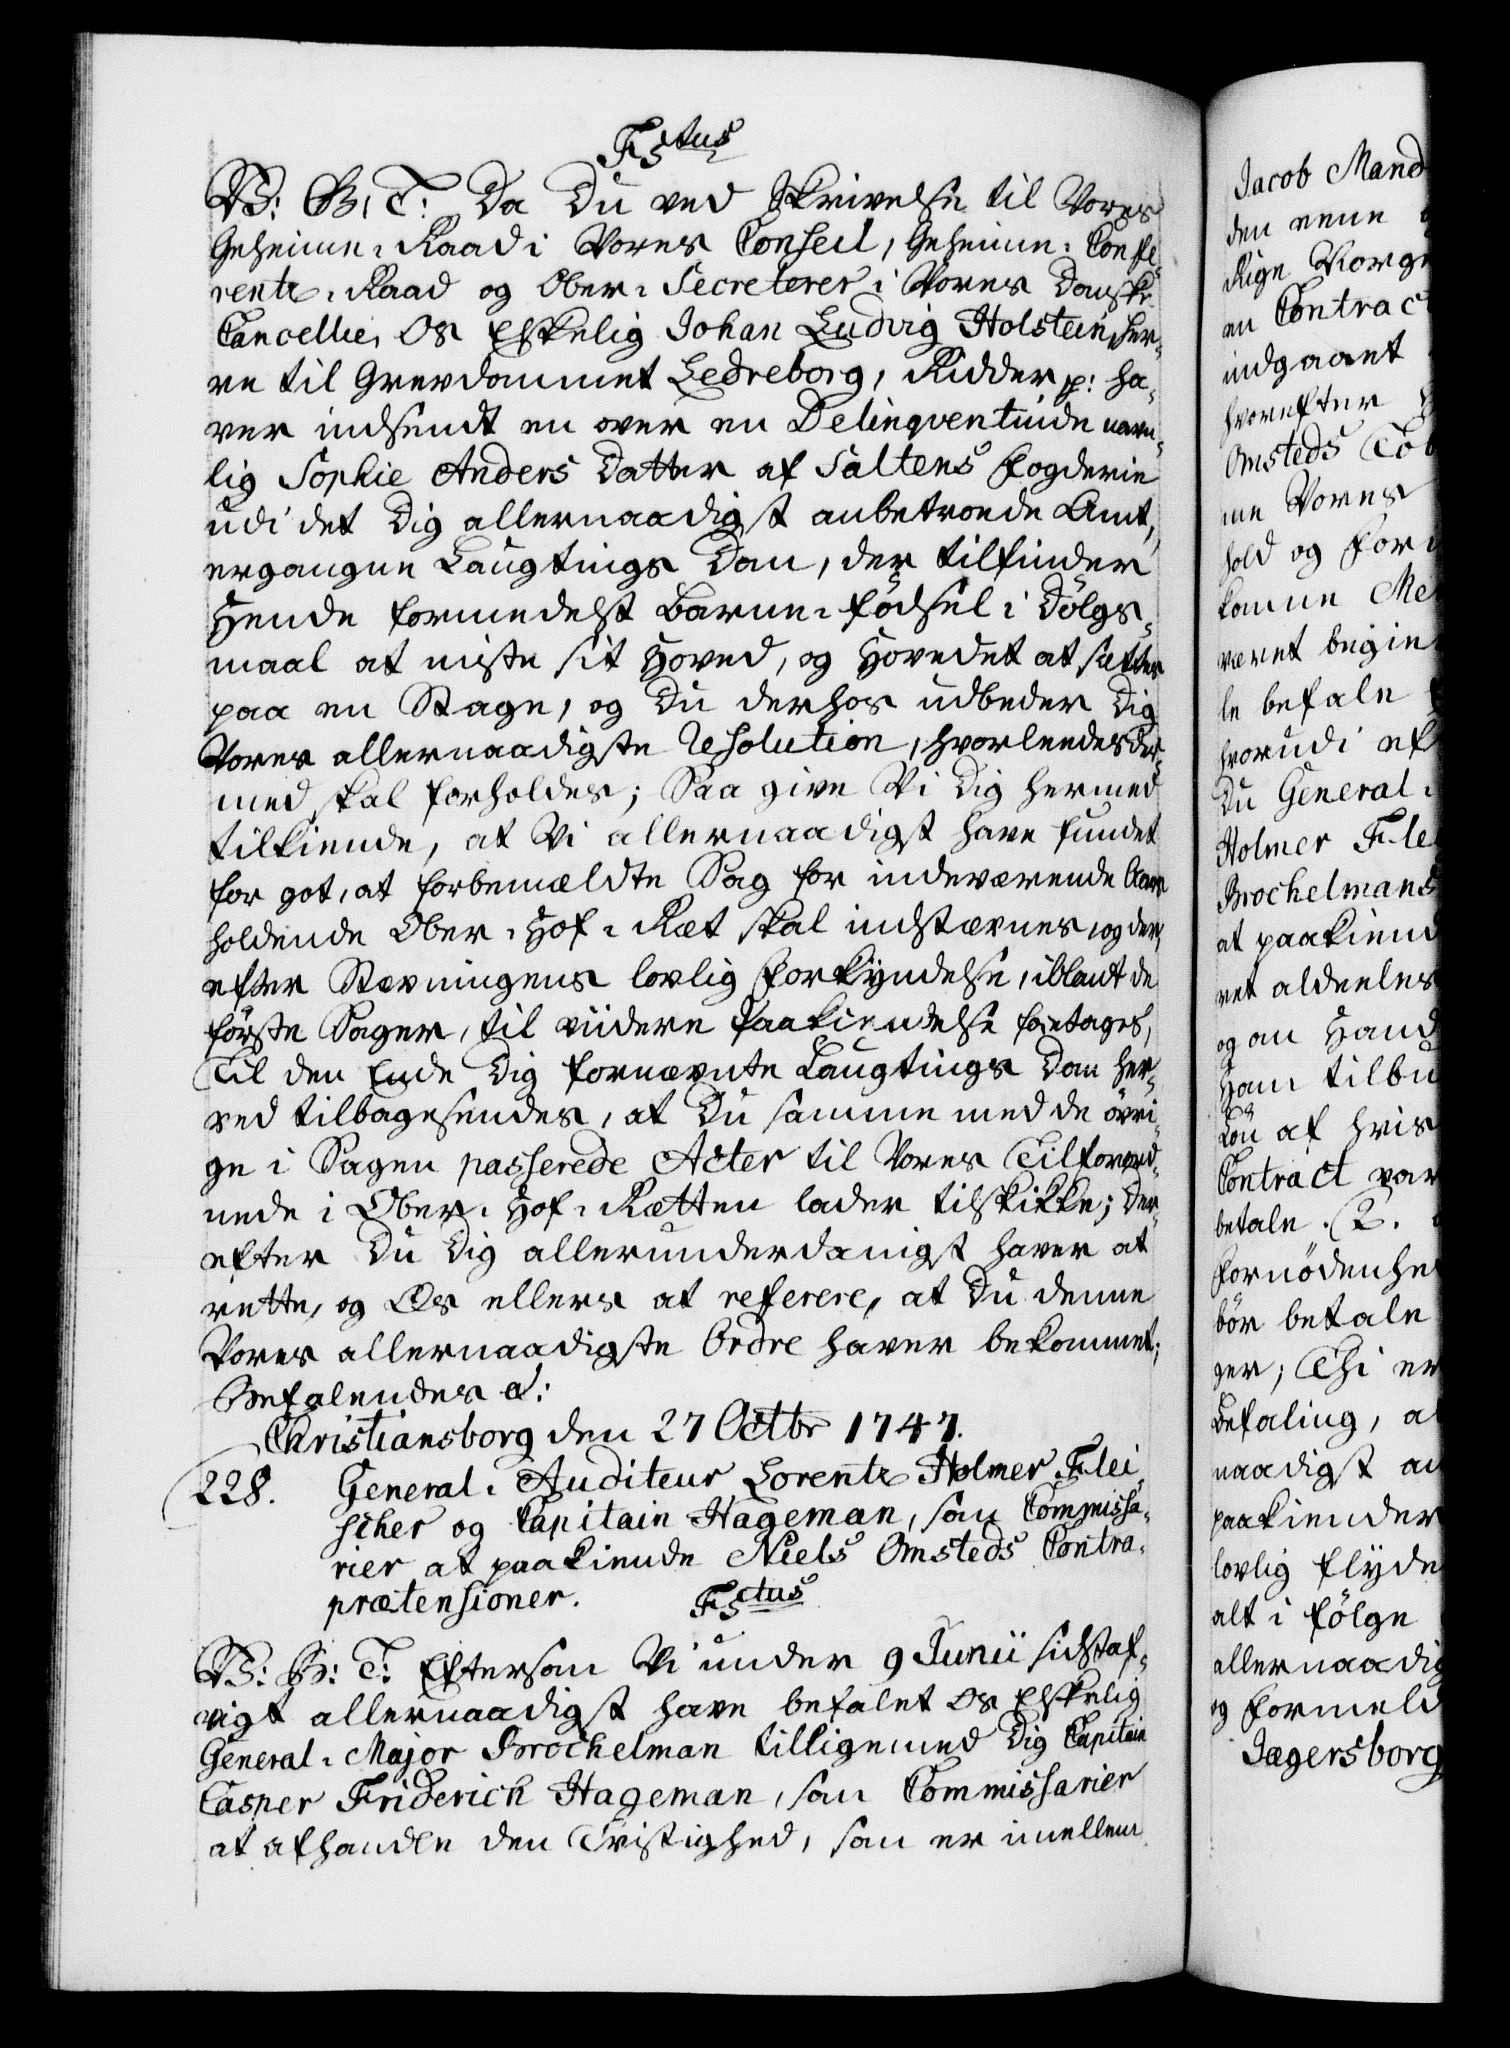 F5tus
V: G: T: Da Du ved Skrivelse til Vores
Geheime-Raad i Vores Conseil, Geheime-Confe-
rentz-Raad og Ober-Secreterer i Vores Danske
Cancellie, Os Elskelig Johan Ludvig Holstein, Her-
re til Grevdommet Ledreborg, Ridder p: ha-
ver indsendt en over en Delinqventinde navn-
lig Sophie Anders Datter af Saltens Fogderie
udi det Dig allernaadigst anbetroede Amt,
ergangne Laugtings Dom, der tilfinder
Hende formedelst Barne-Födsel i Dölgs-
maal at miste sit Hoved, og Hovedet at sættes
paa en Stage, og Du derhos udbeder Dig
Vores allernaadigste Resolution, hvorleedes der-
med skal forholdes; Saa give Vi Dig hermed
tilkiende, at Vi allernaadigst have fundet
for got, at forbemældte Sag for indeværende Aars
holdende Ober-Hof-Ræt skal indstævnes og der,
efter Stævningens lovlig Forkyndelse, iblant de
förste Sager, til viidere Paakiendelse foretages,
Til den Ende Dig fornævnte Laugtings Dom her-
ved tilbagesendes, at Du samme med de övri-
ge i Sagen passerede Acter til Vores Tilforord-
nede i Ober-Hof-Rætten lader tilskikke; Der-
efter Du Dig allerunderdanigst haver at
rette, og Os ellers at referere, at Du denne
Vores allernaadigste Ordre haver bekommet;
Befalendes &:
Christiansborg den 27 Octbr 1747.
228. General-Auditeur Lorentz Holmer Flei-
scher og Capitain Hageman, som Commissa-
rier at paakiende Niels Omsteds Contra-
prætensioner. F5ctus
V: G: T: Eftersom Vi under 9 Junii sidstaf-
vigt allernaadigst have befalet Os Elskelig
General-Major Brochelman tilligemed Dig Capitain
Casper Friderich Hageman, som Commissarier
at afhandle den Tvistighed, som er imellem
Jacob Mand
den eene
Rige Norge
en Contract
indgaaet
hvorefter
Omsteds Tob
me Vores
hold og For
komme Me
været begie
le befale
hvorudi ef
Du General-
Holmer Fle
Brochelmans
at paakiend
ret aldeeles
og om Hand
Ham tilbu
Lön af hvis
Contract var
betale. 2.
Fornödenhe
bör betale
ger; Thi er
Befaling, a
naadigst an
paakiender
lovlig flyde
alt i fölge
allernaadig
og Formeld
Jægersborg